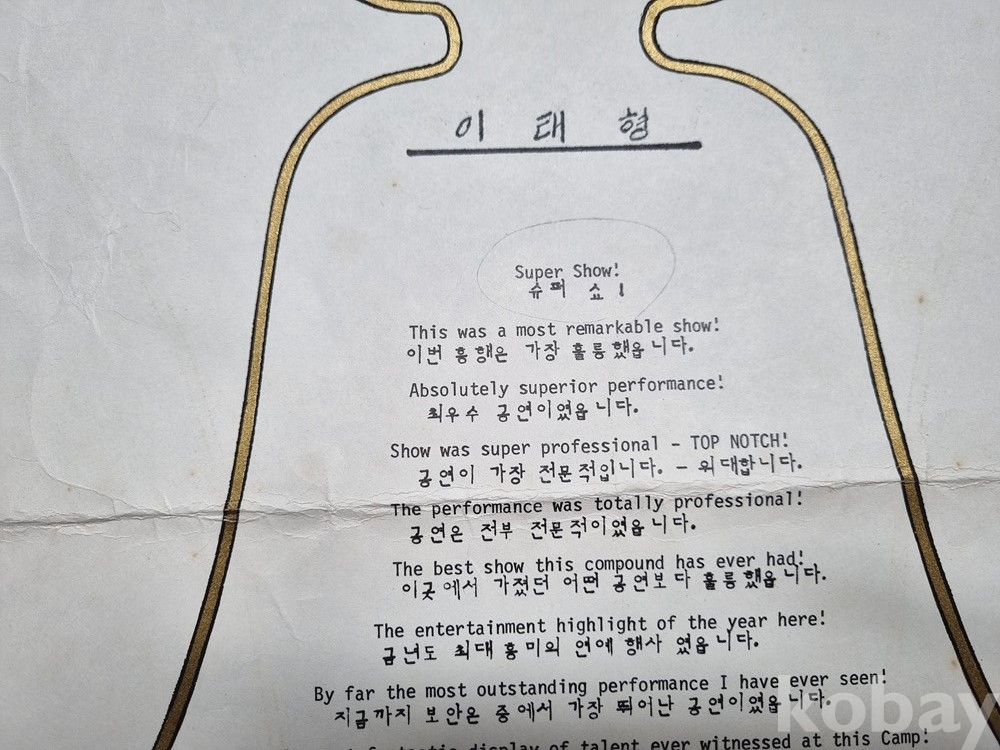 이 태 형
Super Show!
슈퍼 쇼!
This was a most remarkable show!
이번 흥행은 가장 훌륭했읍니다.
Absolutely superior performance!
최우수 공연이였읍니다.
Show was super professional - TOP NOTCH!
공연이 가장 전문적입니다. - 위대합니다.
The performance was totally professional!
공연은 전부 전문적이었읍니다.
The best show this compound has ever had!
이곳에서 가졌던 어떤 공연보다 훌륭했읍니다.
The entertainment highlight of the year here!
금년도 최대 흥미의 연예 행사 였읍니다.
By far the most outstanding performance I have ever seen!
지금까지 보안은 중에서 가장 뛰어난 공연이었읍니다.
fantastic display of talent ever witnessed at this Camp!
kobay